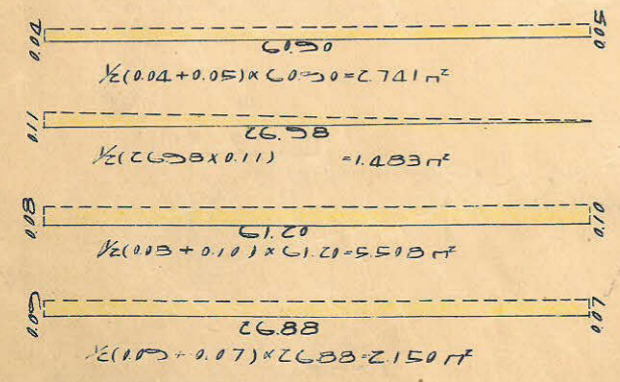 0.04 60.90 0.05
½(0.04+0.05)×60.90=2.741m²
0.11 26.98
½(26.98×0.11) =1.483m²
0.08 61.20 0.10
½(0.08+0.10)×61.20=5.508m²
0.09 26.88 0.07
½(0.09+0.07)×26.88=2.150m²